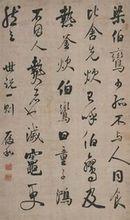 梁伯鸞少孤不與人同食
比舍先炊已呼伯鸞及
熱釜炊伯鸞曰童子鴻
不因人熱者也滅竈更
然之 世說